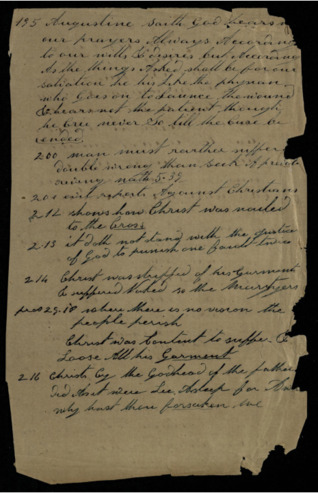 195 Augustine Saith God hears n
our prayers Always According
to our wills & desires but According
As the things Asked shall be for our
salvation he his like the physician
who Goes on to Launce the wound
& hears not his patient though
he Crie never So till the Cure be
ended
200 man must rather suffer
double wrong than Seek
math 5-39
201 evil reports Against Christians
212 shows how Christ was nailed
to the Cross
213 it doth not stand with the justice
of God to punish one fault twice
214 Christ was stripped of his Garment
& suffered Naked so the
pro 29-18 where there is no vision the
people perish
Christ was Content to suffer &
Loose All his Garment
216 Christ by the Godhead of the father
did As it were Lie Asleep for
why hast thou forsaken me